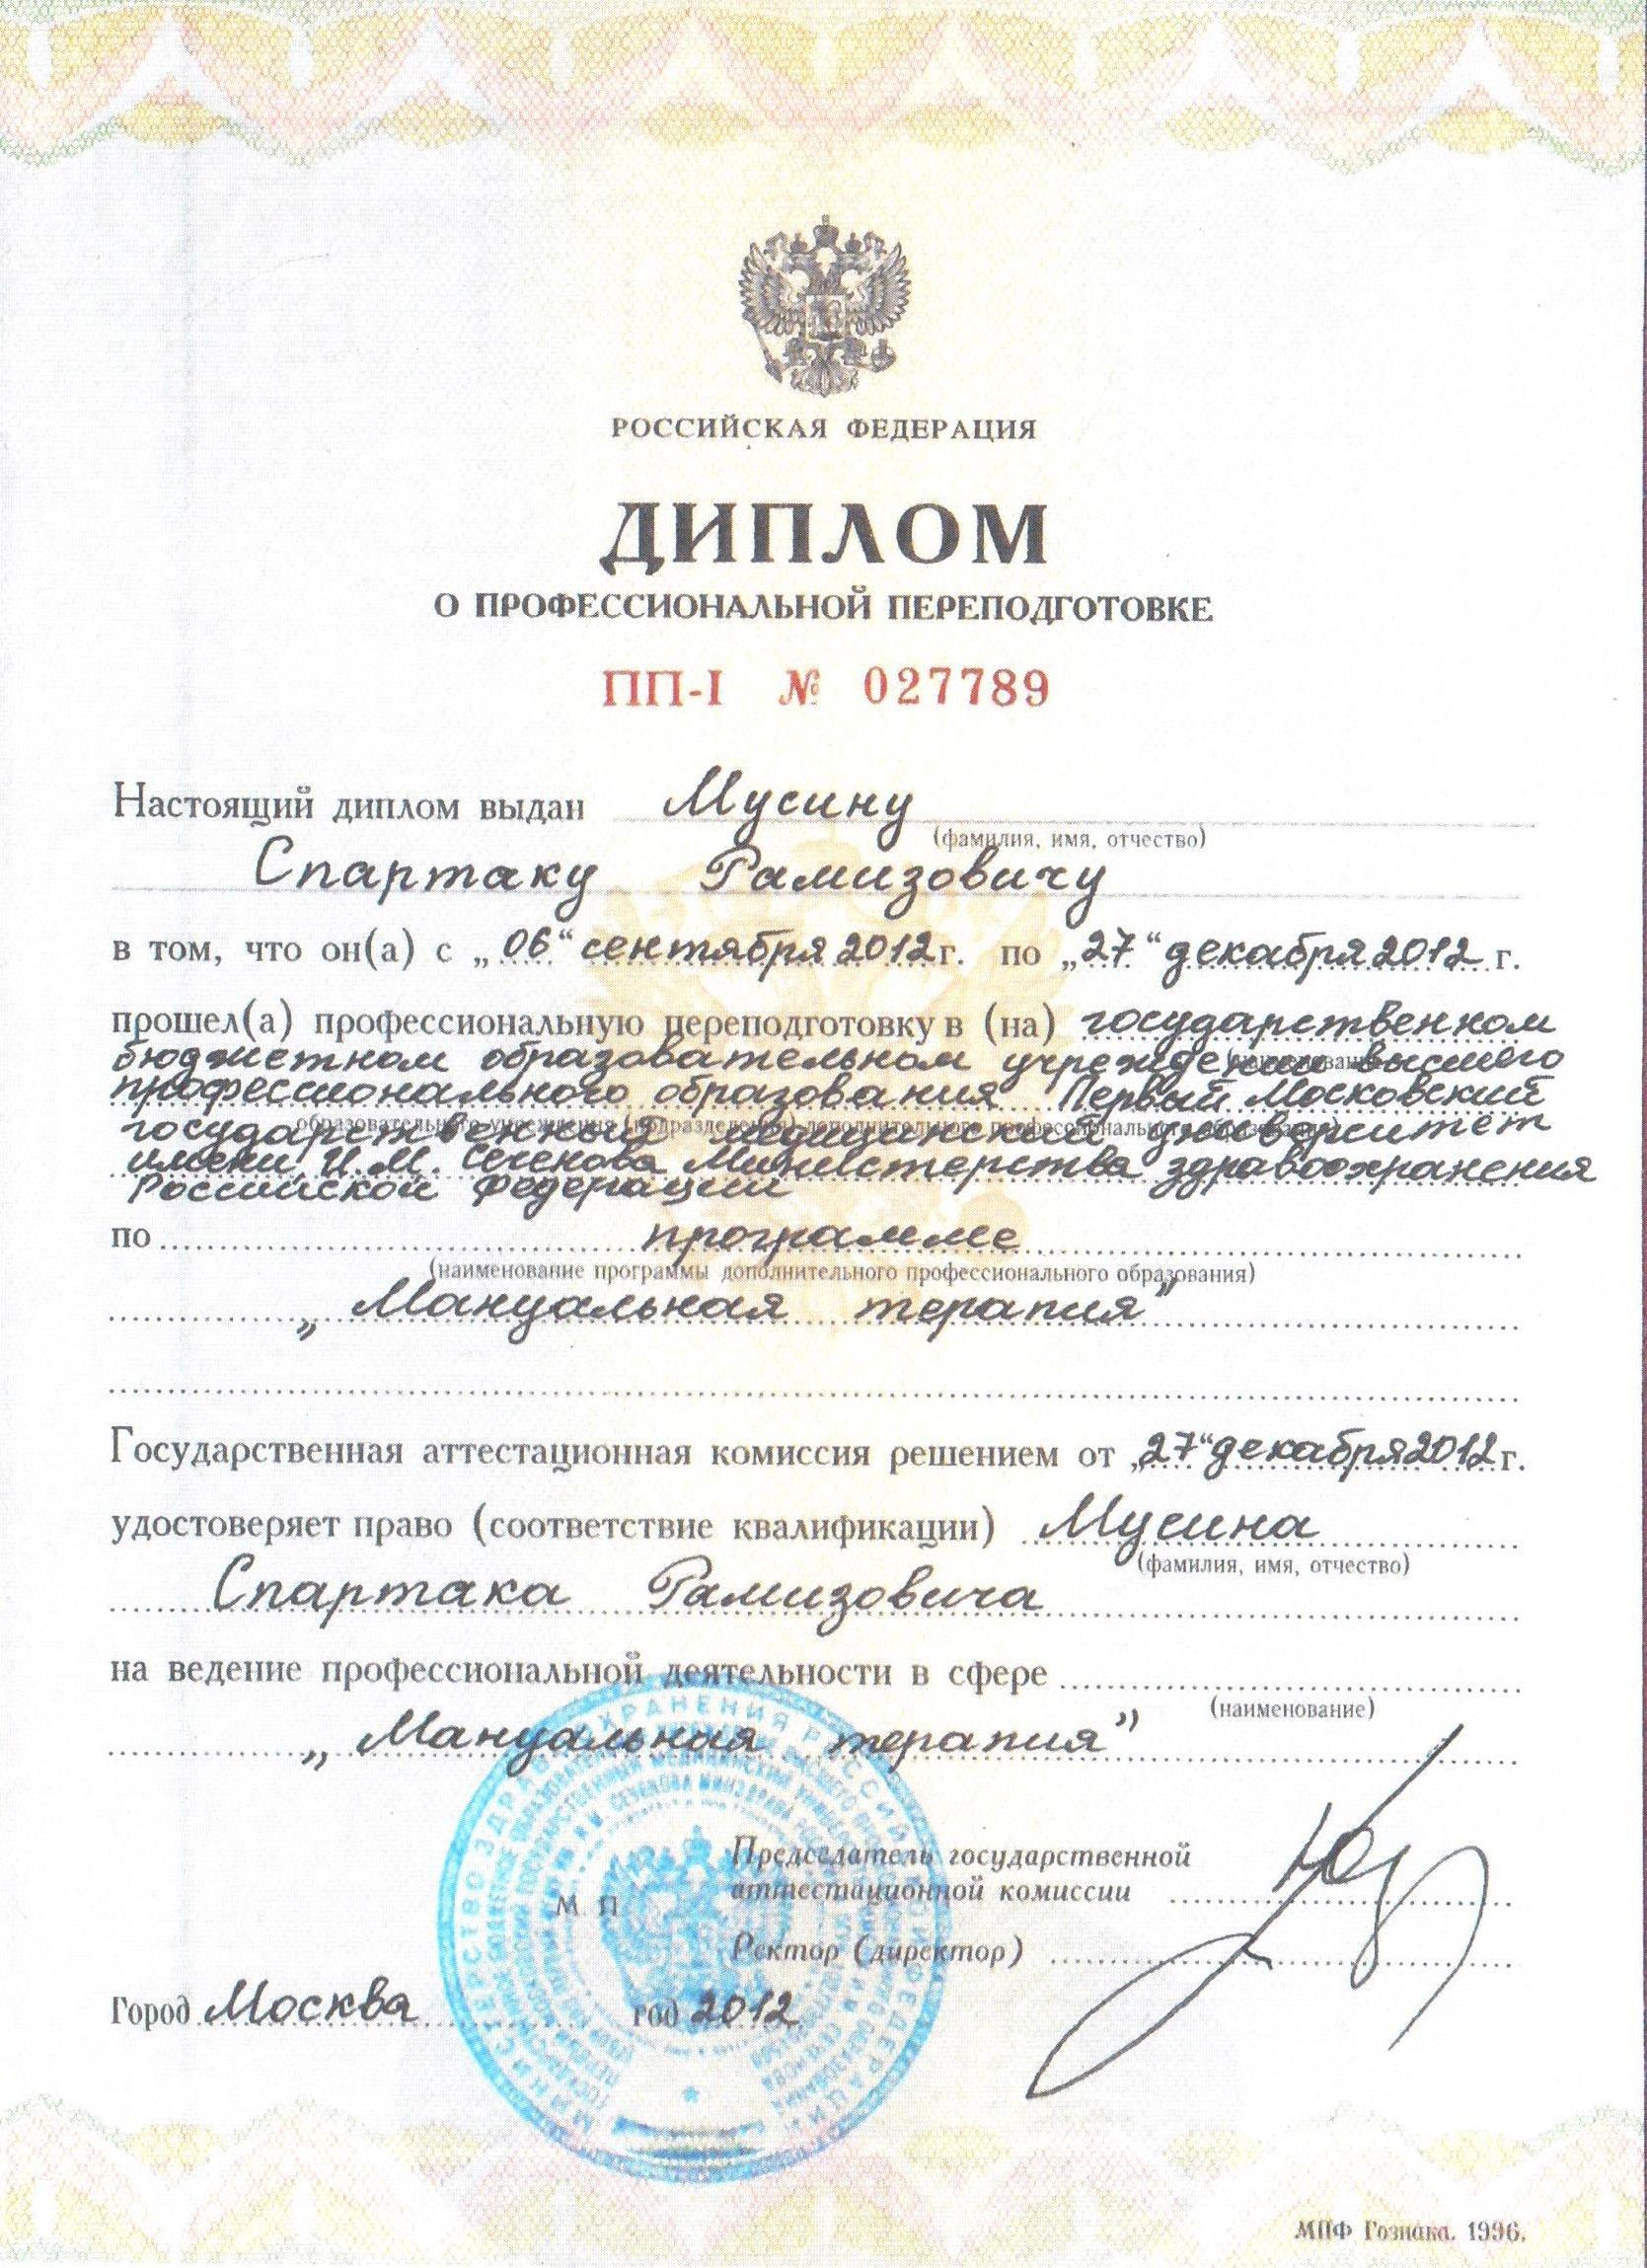 РОССИЙСКАЯ ФЕДЕРАЦИЯ
ДИПЛОМ
О ПРОФЕССИОНАЛЬНОЙ ПЕРЕПОДГОТОВКЕ
ПП-I № 027789
Настоящий диплом выдан Мусину
(фамилия, имя, отчество)
Спартаку Рамизовичу
в том, что он(а) с „06“ сентября 2012 г. по „27“ декабря 2012 г.
прошел(а) профессиональную переподготовку в (на) государственном
бюджетном образовательном учреждении высшего
профессионального образования Первый Московский
образовательного учреждения (подразделения) дополнительного профессионального образования)
государственный медицинский университет
имени И.М. Сеченова Министерства здравоохранения
Российской Федерации
по программе
(наименование программы дополнительного профессионального образования)
„Мануальная терапия”
Государственная аттестационная комиссия решением от „27“ декабря 2012 г.
удостоверяет право (соответствие квалификации) Мусина
(фамилия, имя, отчество)
Спартака Рамизовича
на ведение профессиональной деятельности в сфере
(наименование)
„Мануальная терапия”
Председатель государственной
аттестационной комиссии
М П
Ректор (директор)
Город Москва год 2012
МИНИСТЕРСТВО ЗДРАВООХРАНЕНИЯ РОССИЙСКОЙ ФЕДЕРАЦИИ
МПФ Гознака. 1996.